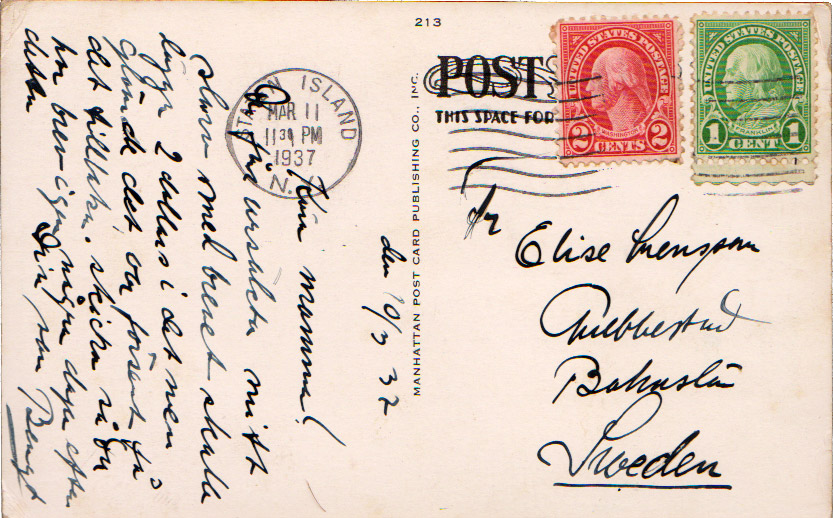 213
POST
THIS SPACE FOR
UNITED STATES POSTAGE
WASHINGTON
2 CENTS 2
UNITED STATES POSTAGE
FRANKLIN
1 CENT 1
STATEN ISLAND
MAR 11
11 30 PM
1937
N.Y.
MANHATTAN POST CARD PUBLISHING CO., INC.
den 10/3 37
Kära mamma!
Du får ursäkta mitt
slarv med brevet skulle
lägga 2 dollars i det men
glömde det, var försent få
det tillbaka. skickar
brev igen några dagar efter
detta Din son Bengt
Fr
Elise Svensson
Grebbestad
Bohuslän
Sweden